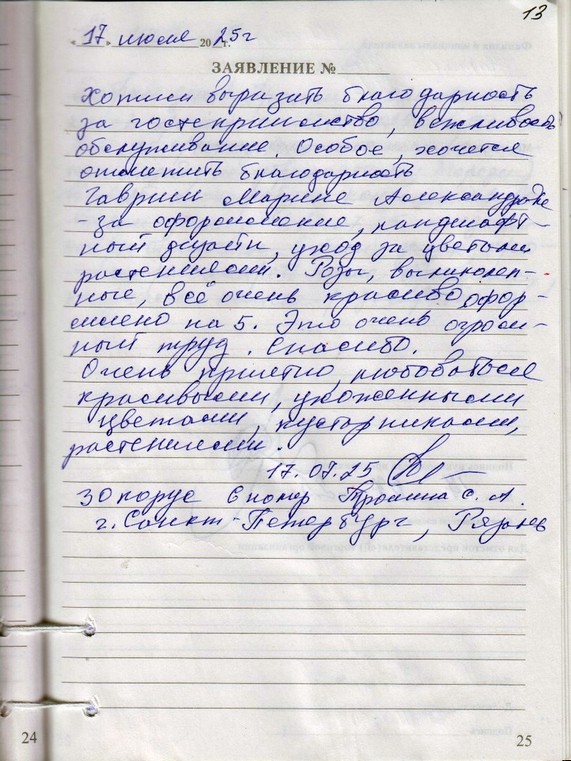 13
"17" июля 2025г.
ЗАЯВЛЕНИЕ №
Хотим выразить благодарность
за гостеприимство, вежливость
обслуживание. Особое, хочется
отметить благодарность
Марине Александровне
- за оформление, ландшафт-
ный дизайн, уход за цветами
растениями. Розы, великолеп-
ные, всё очень красиво офор-
млено на 5. Это очень огром-
ный труд. Спасибо.
Очень приятно, любоваться
красивыми, ухоженными
цветами, кустарниками,
растениями.
17.07.25
3 корпус 6 номер С. А.
г. Санкт-Петербург,
24
25